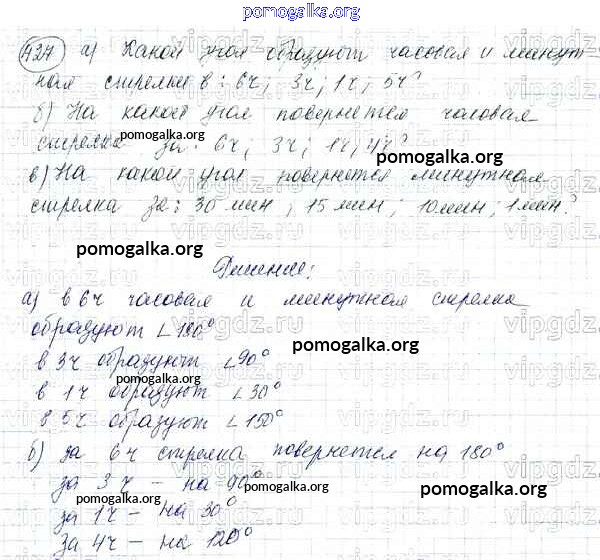 pomogalka.org
427 а) Какой угол образуют часовая и минут-
ная стрелки в: 6ч; 3ч; 1ч; 5ч?
б) На какой угол повернется часовая
стрелка за: 6ч; 3ч; 1ч; 4ч?
pomogalka.org
pomogalka.org
в) На какой угол повернется минутная
стрелка за: 30 мин; 15 мин; 10 мин; 1 мин?
vipgdz.ru
pomogalka.org
Решение:
а) в 6ч часовая и минутная стрелка
образуют ∠180°
pomogalka.org
в 3ч образуют ∠90°
pomogalka.org
в 1ч образуют ∠30°
в 5ч образуют ∠150°
б) за 6ч стрелка повернется на 180°
за 3ч - на 90°
pomogalka.org
pomogalka.org
за 1ч - на 30°
за 4ч - на 120°